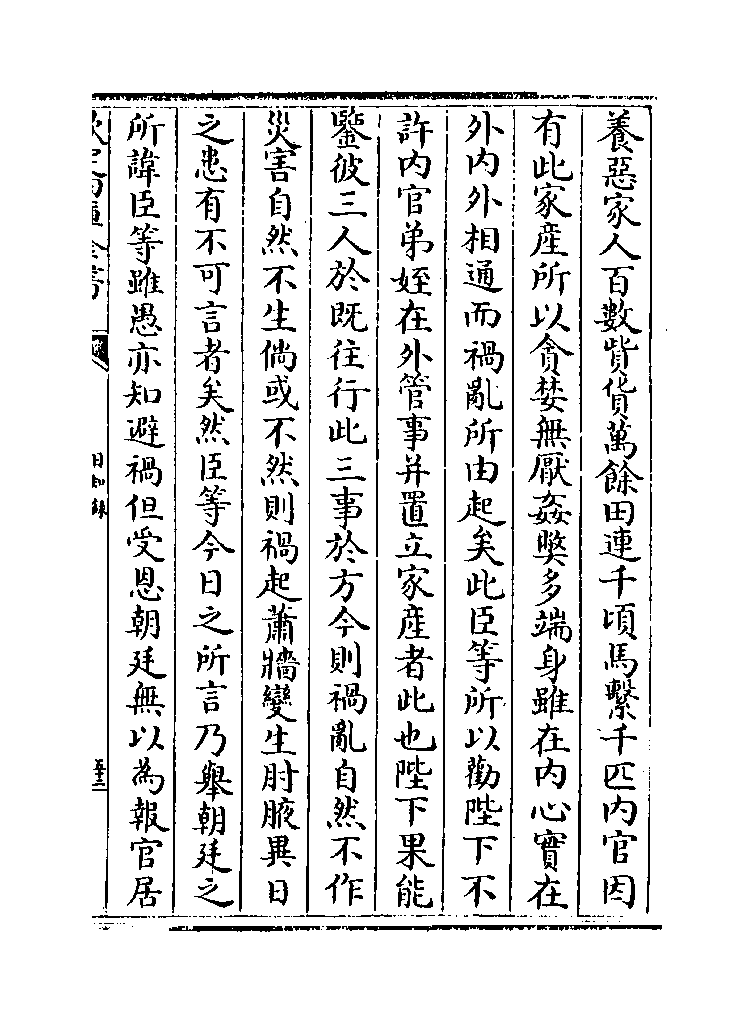 養惡家人百數貲貨萬餘田連千頃馬繫千匹内官因
有此家産所以貪婪無厭姦獘多端身雖在内心實在
外内外相通而禍亂所由起矣此臣等所以勸陛下不
許内官弟姪在外管事并置立家産者此也陛下果能
鑒彼三人於既往行此三事於方今則禍亂自然不作
災害自然不生倘或不然則禍起蕭牆變生肘腋異日
之患有不可言者矣然臣等今日之所言乃舉朝廷之
所諱臣等雖愚亦知避禍但受恩朝廷無以為報官居
欽定四庫全書
日知錄